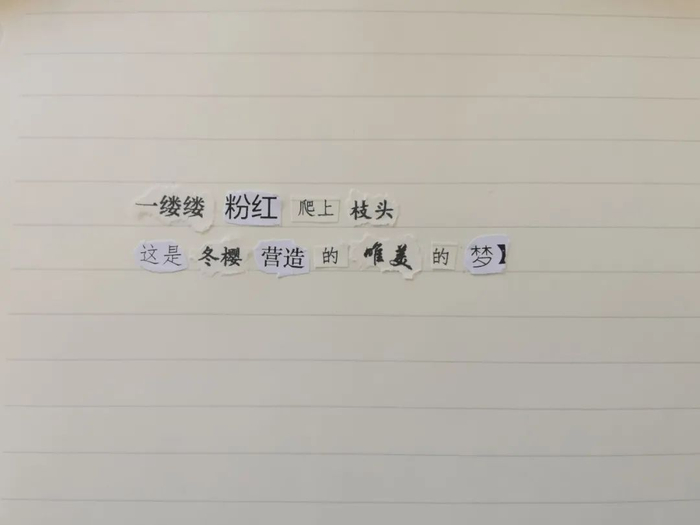 一缕缕粉红爬上枝头
这是冬樱营造的唯美的梦】